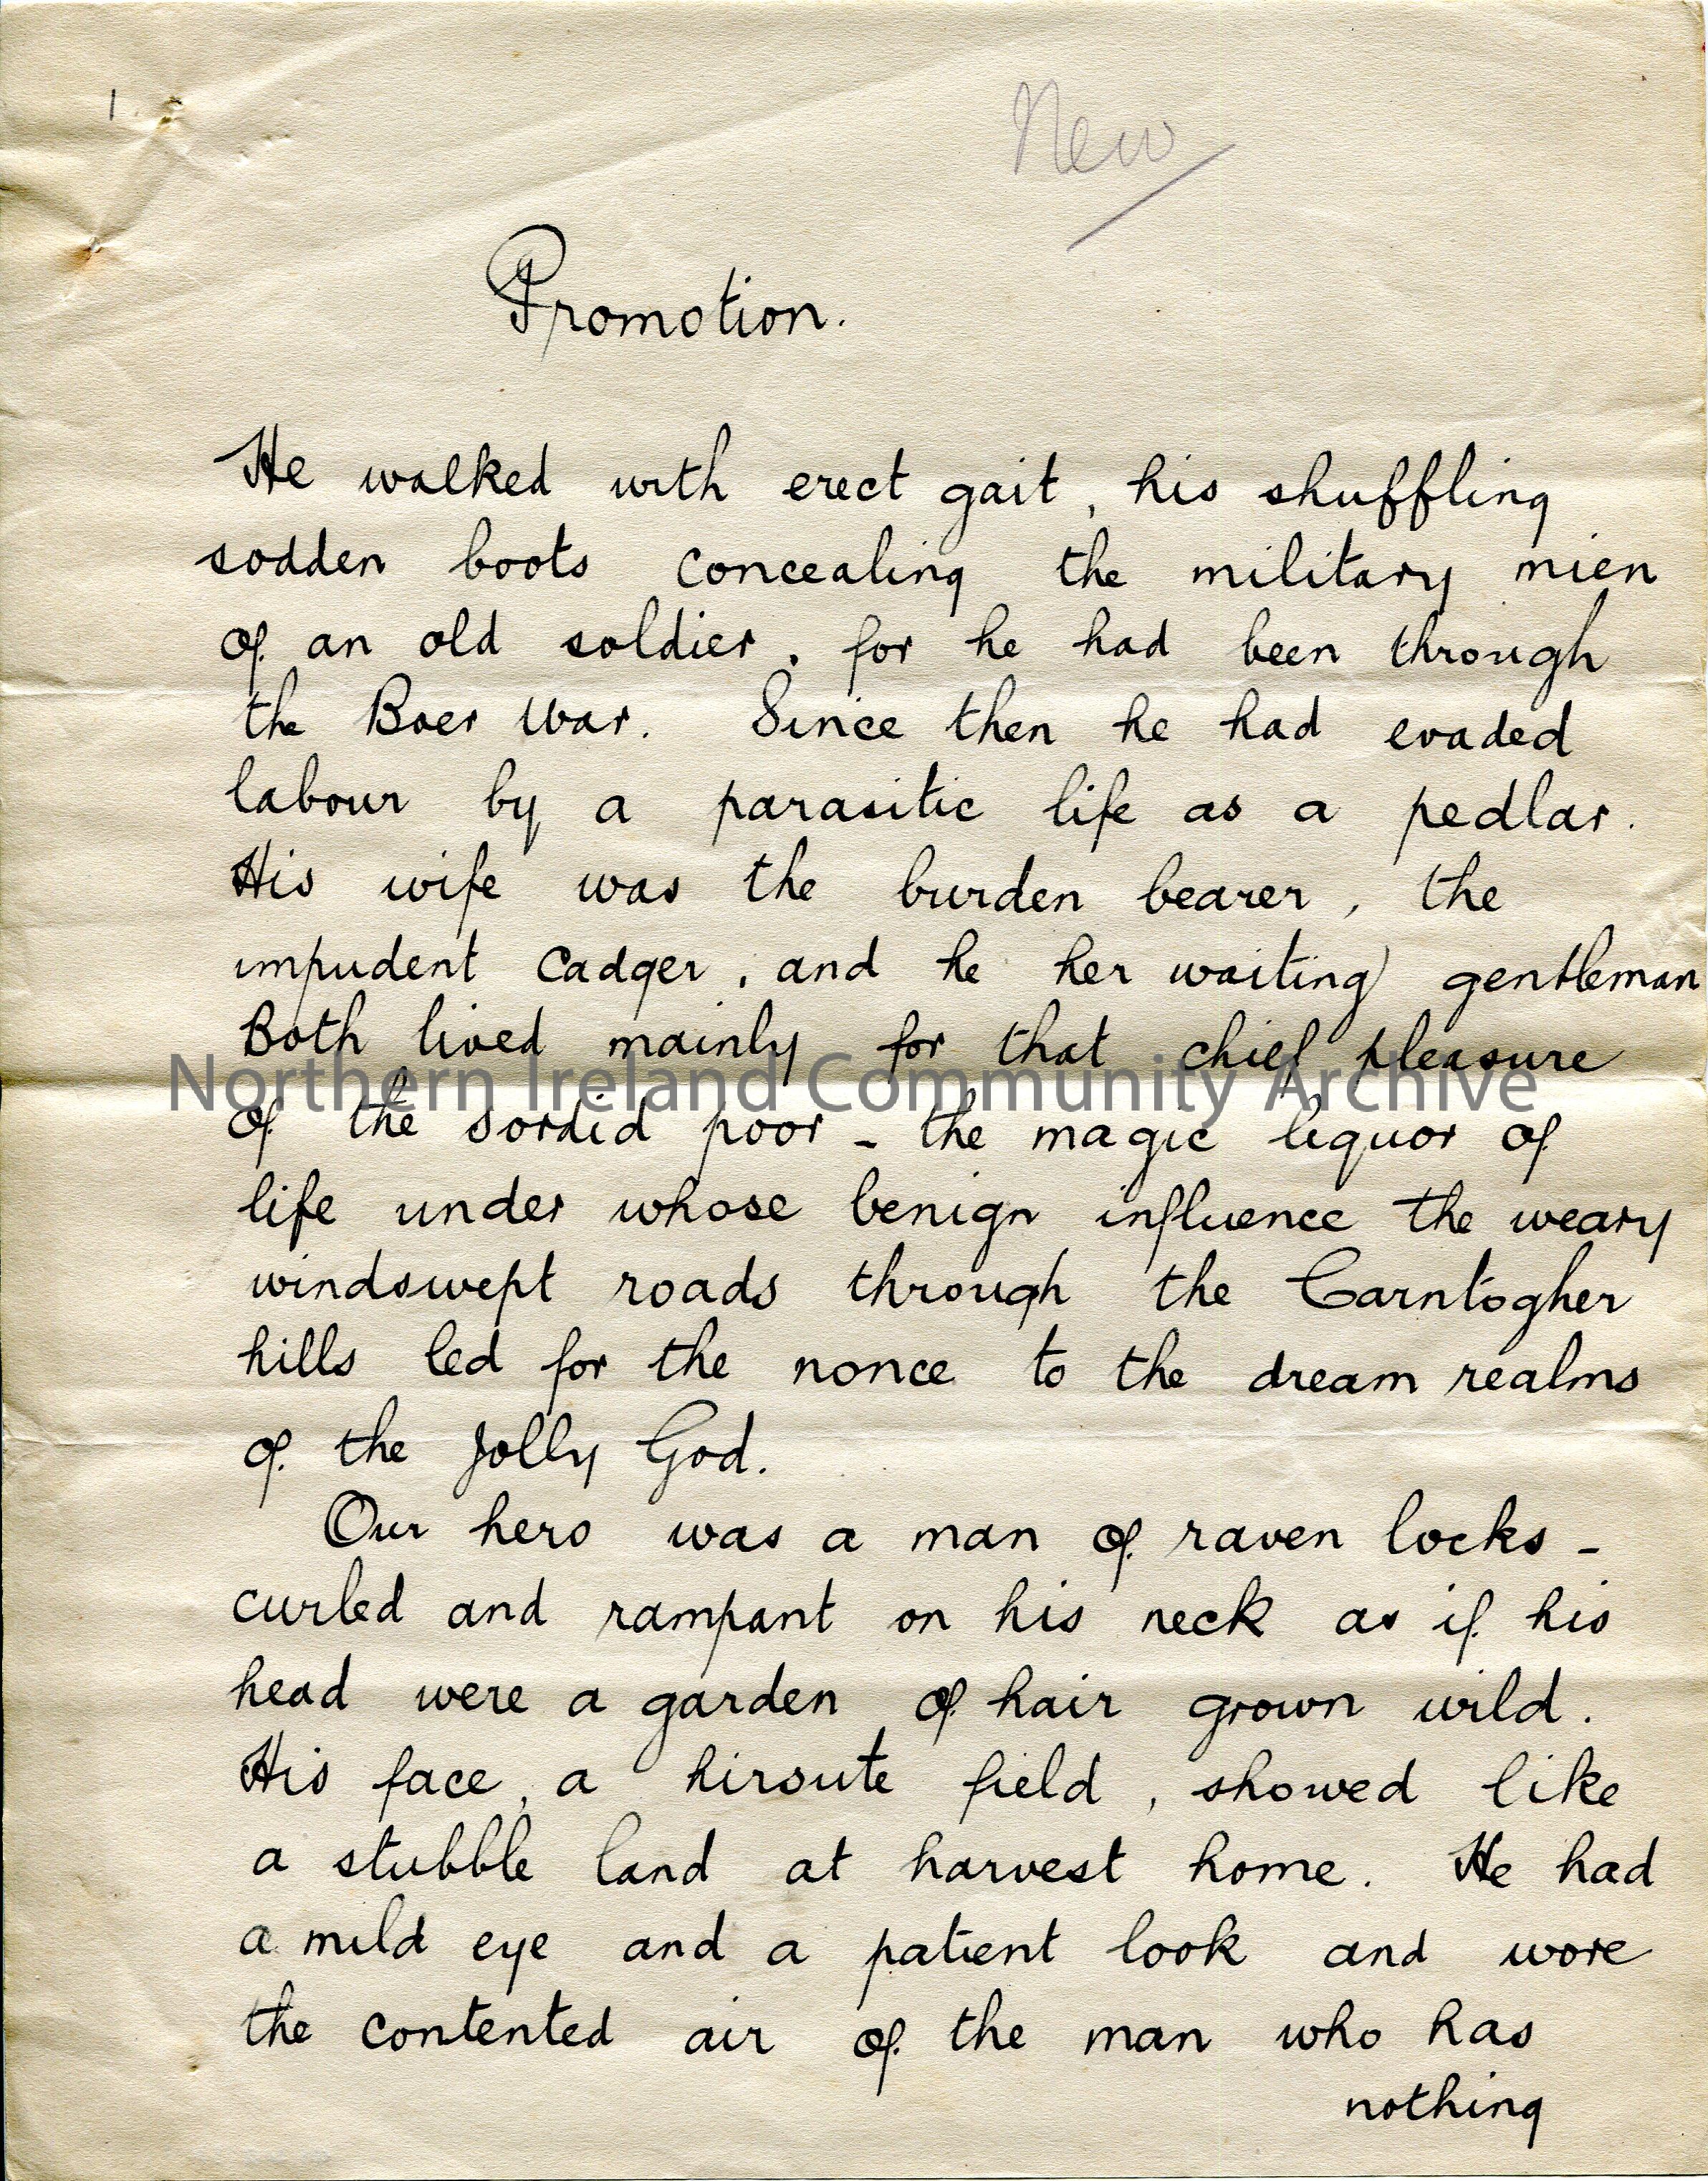 1
New
Promotion.
He walked with erect gait, his shuffling
sodden boots concealing the military mien
of an old soldier, for he had been through
the Boer War. Since then he had evaded
labour by a parasitic life as a pedlar.
His wife was the burden bearer, the
impudent cadger, and he her waiting gentleman
Both lived mainly for that chief pleasure
Northern Ireland Community Archive
of the sordid poor - the magic liquor of
life under whose benign influence the weary
windswept roads through the Carntogher
hills led for the nonce to the dream realms
of the Jolly God.
Our hero was a man of raven locks -
curled and rampant on his neck as if his
head were a garden of hair grown wild.
His face, a hirsute field, showed like
a stubble land at harvest home. He had
a mild eye and a patient look and wore
the contented air of the man who has
nothing